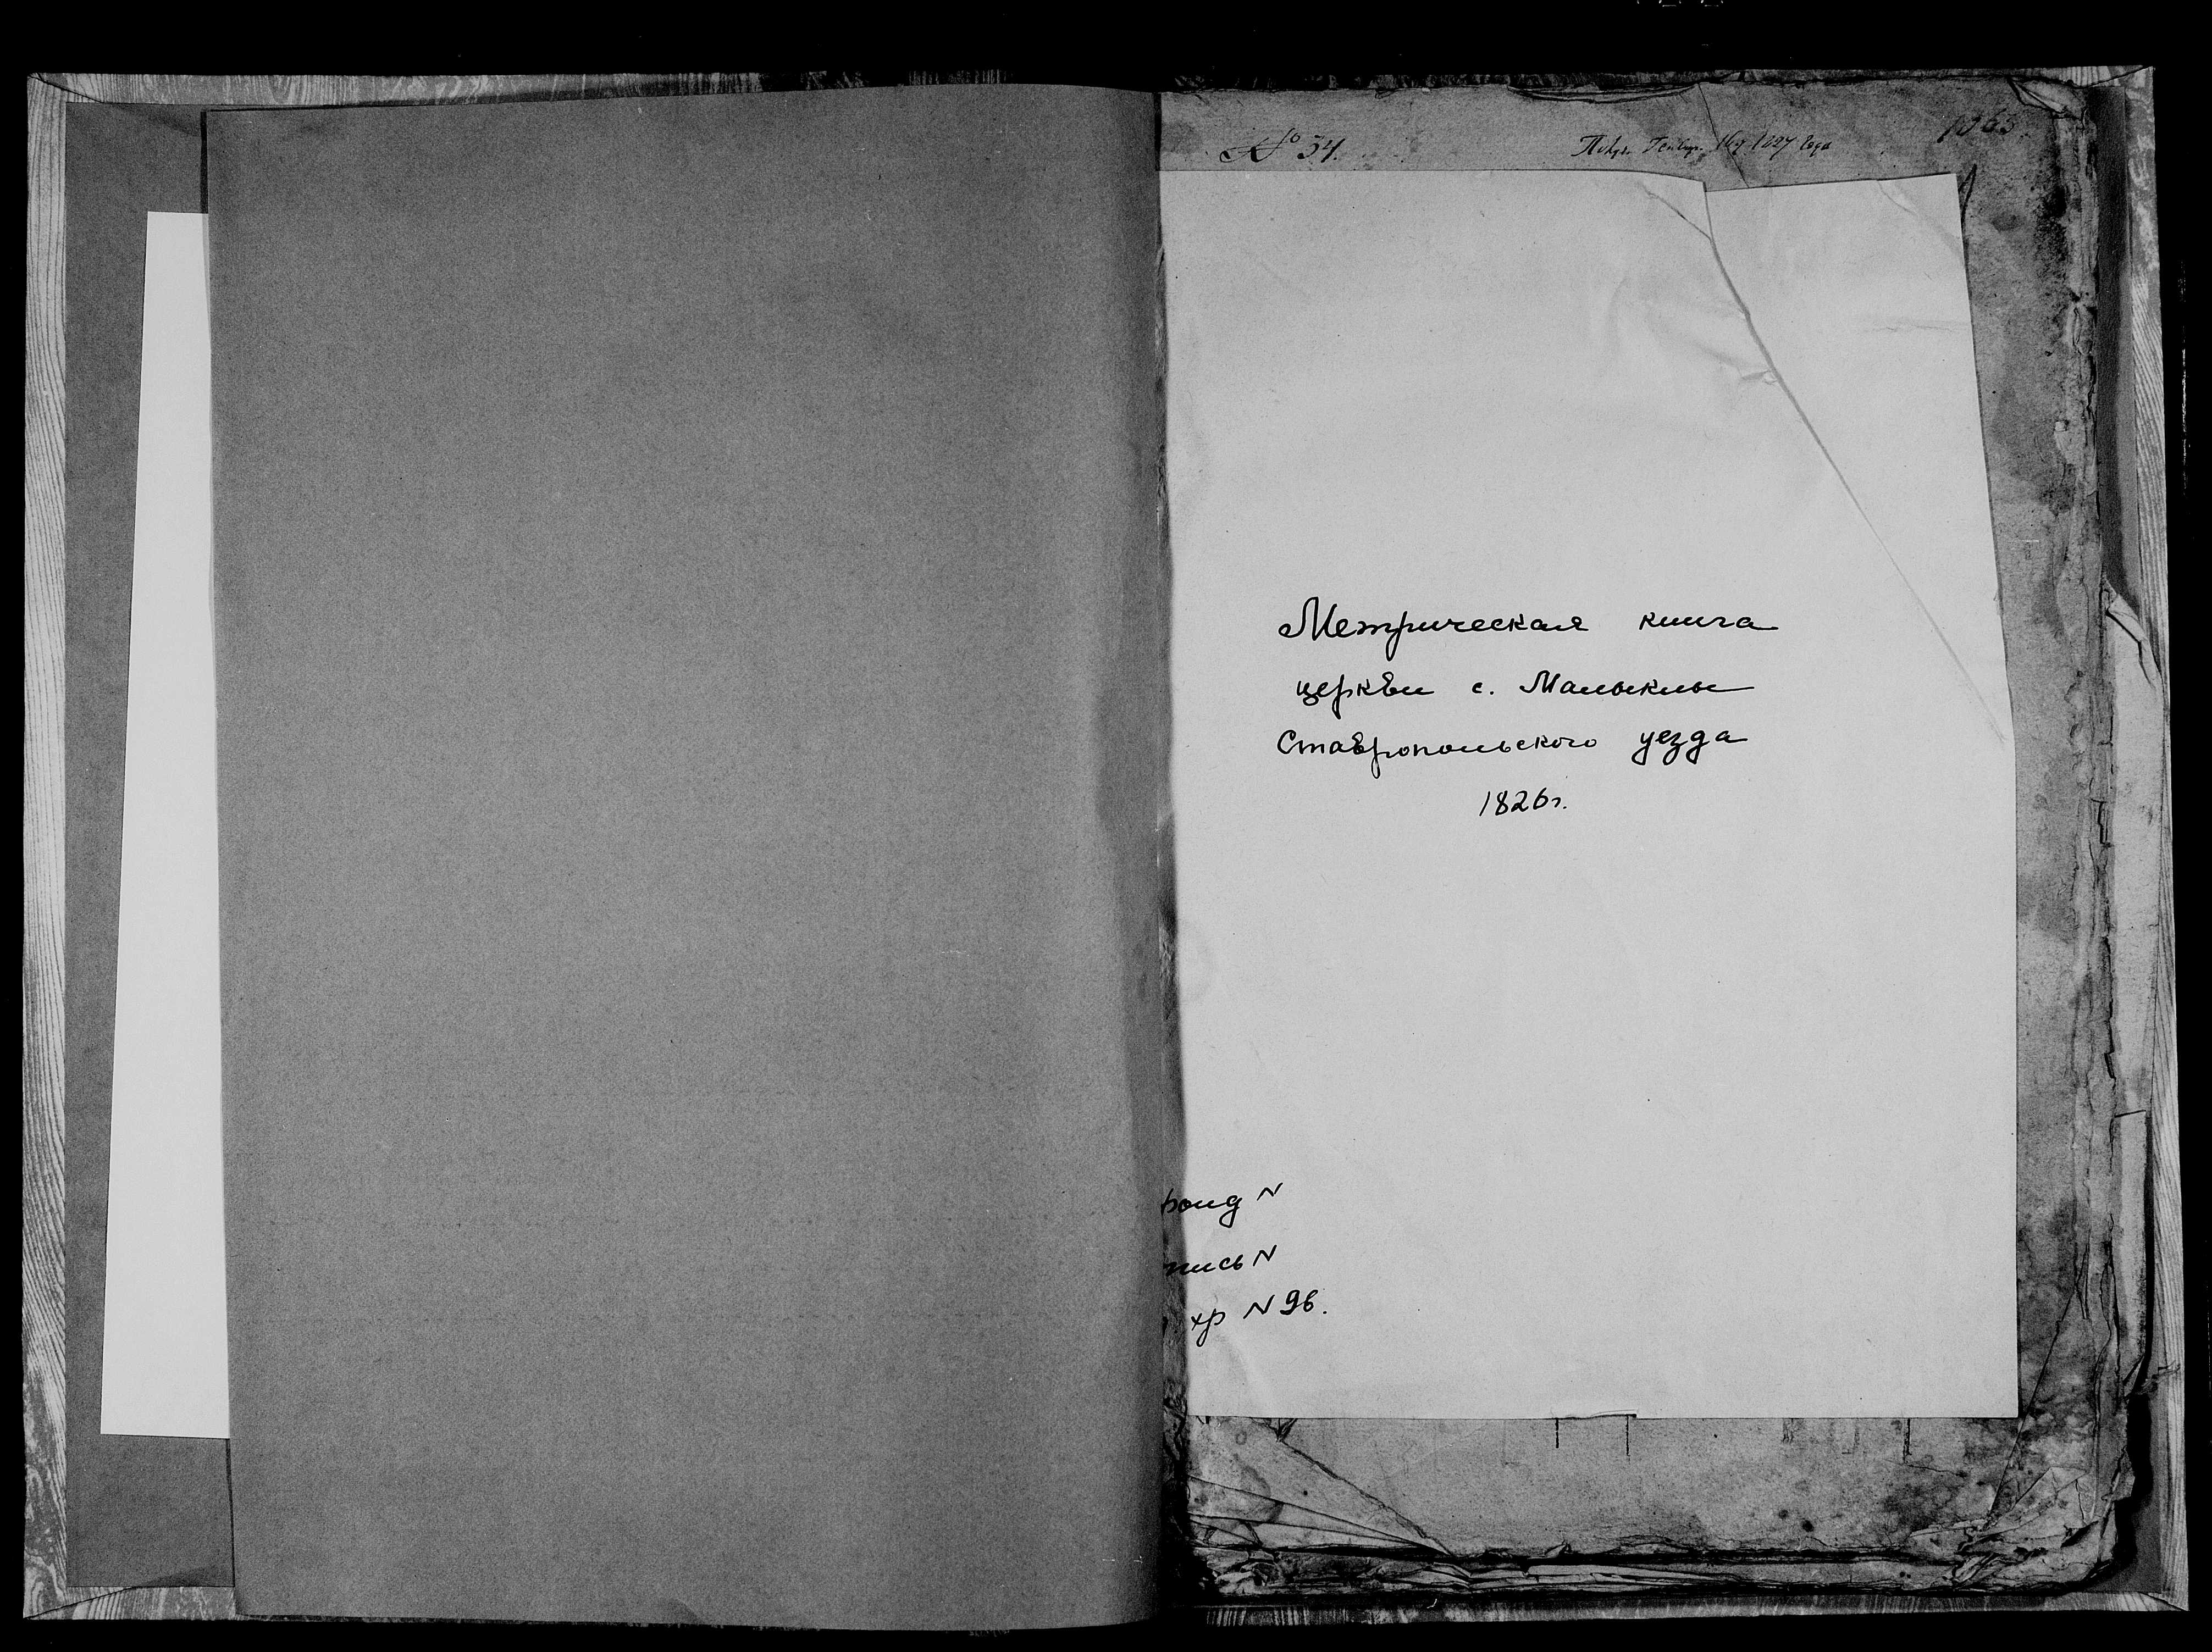 № 34.
Генвар. 16 д. 1827 года
Метрическая книга
церкви с. Малыклы
Ставропольского уезда
1826г.
фонд N
пись N
хр N 96.